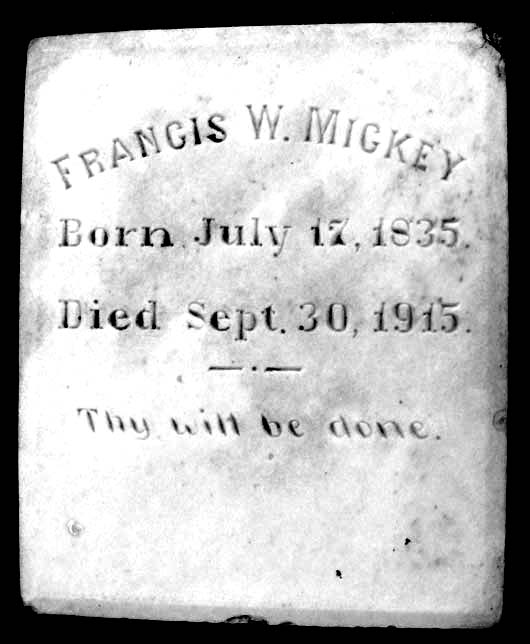 FRANCIS W. MICKEY
Born July 17, 1835.
Died Sept. 30, 1915.
Thy will be done.